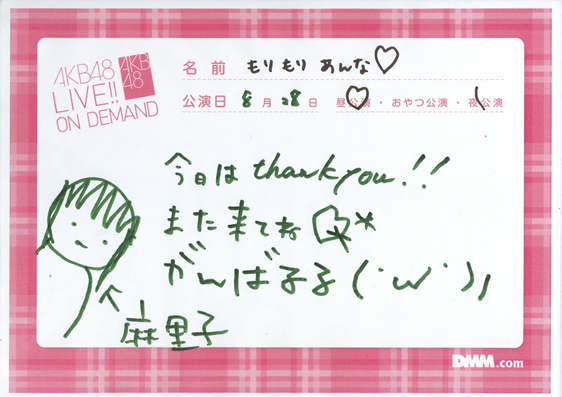 AKB48
LIVE!!
ON DEMAND
AKB
48
名前 もりもり あんな♡
公演日 8月28日 昼公演・おやつ公演・夜公演
今日は thank you!!
また来てね
がんば子子(´ω`)ﾉ
麻里子
DMM.com